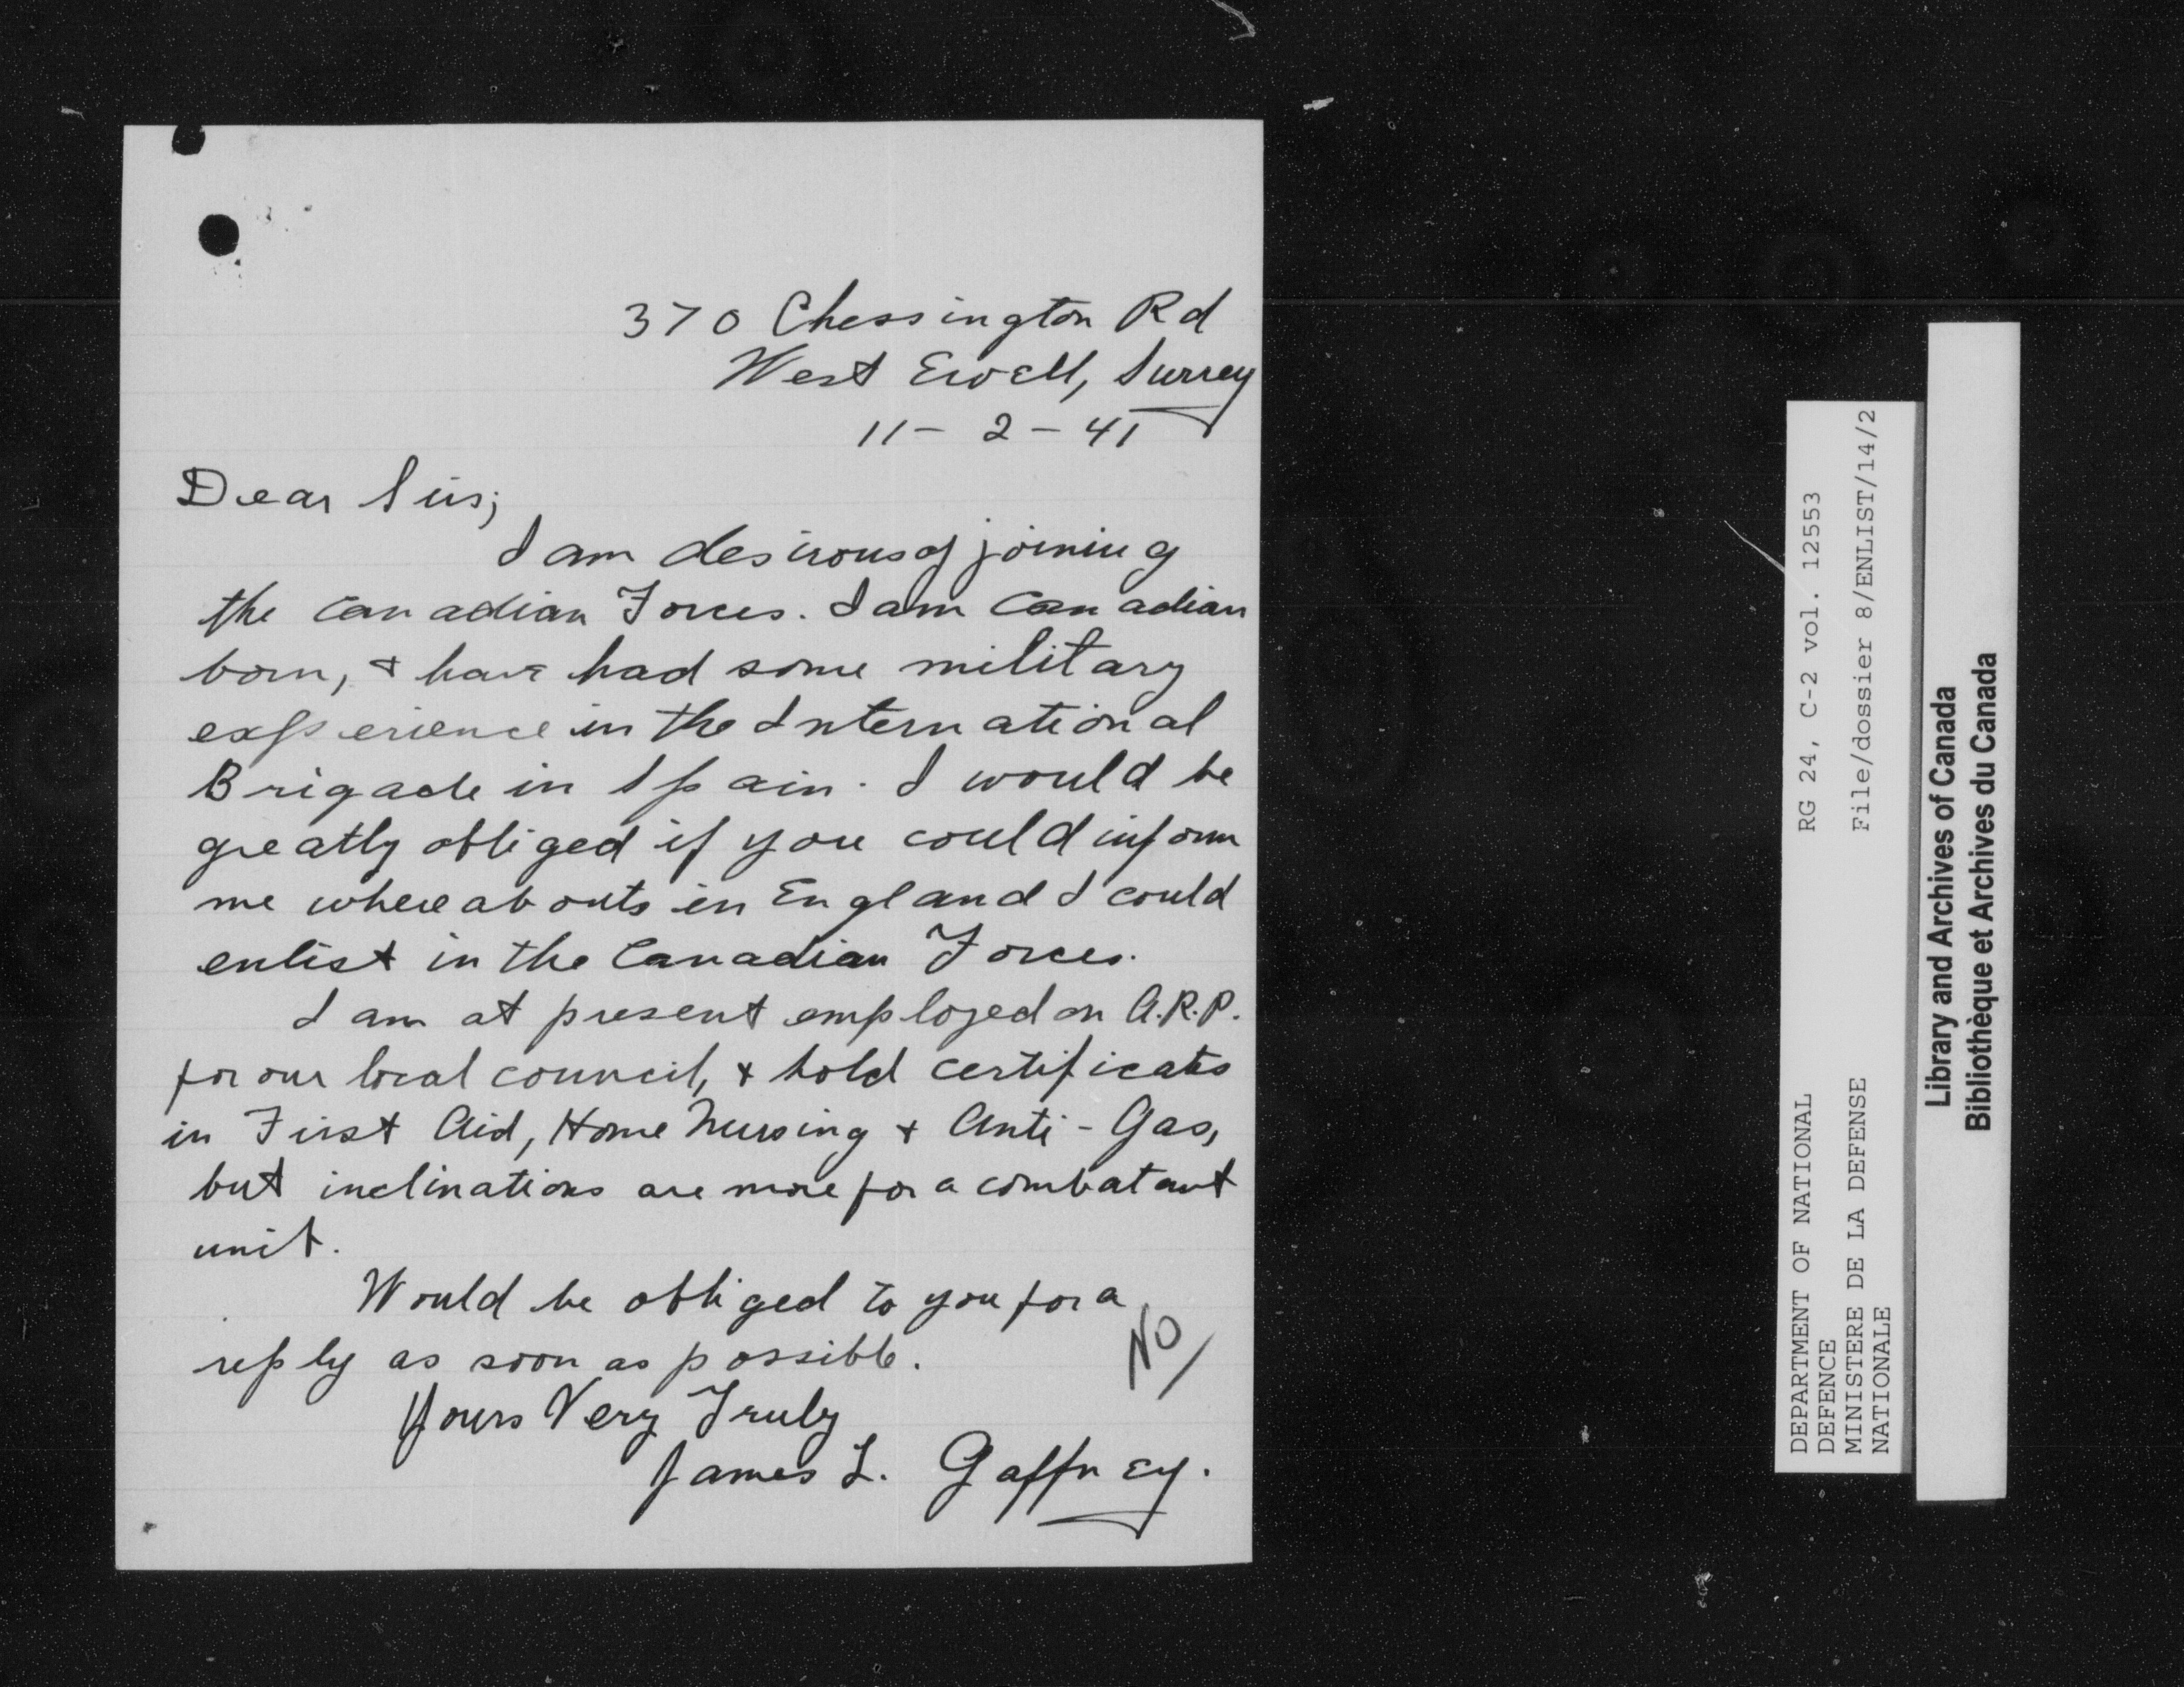 370 Chessington Rd
West Ewell, Surrey
11 - 2 - 41
Dear Sirs;
I am desirous of joining
the Canadian Forces. I am Canadian
born, + have had some military
experience in the International
Brigade in Spain. I would be
greatly obliged if you could inform
me whereabouts in England I could
enlist in the Canadian Forces.
I am at present employed on A.R.P.
for our local council, + hold certificates
in First Aid, Home Nursing + Anti-Gas,
but inclinations are more for a combatant
unit.
Would be obliged to you for a
reply as soon as possible.
NO
Yours Very Truly
James L. Gaffney.
DEPARTMENT OF NATIONAL
DEFENCE
MINISTERE DE LA DEFENSE
NATIONALE
RG 24, C-2 vol. 12553
File/dossier 8/ENLIST/14/2
Library and Archives of Canada
Bibliothèque et Archives du Canada